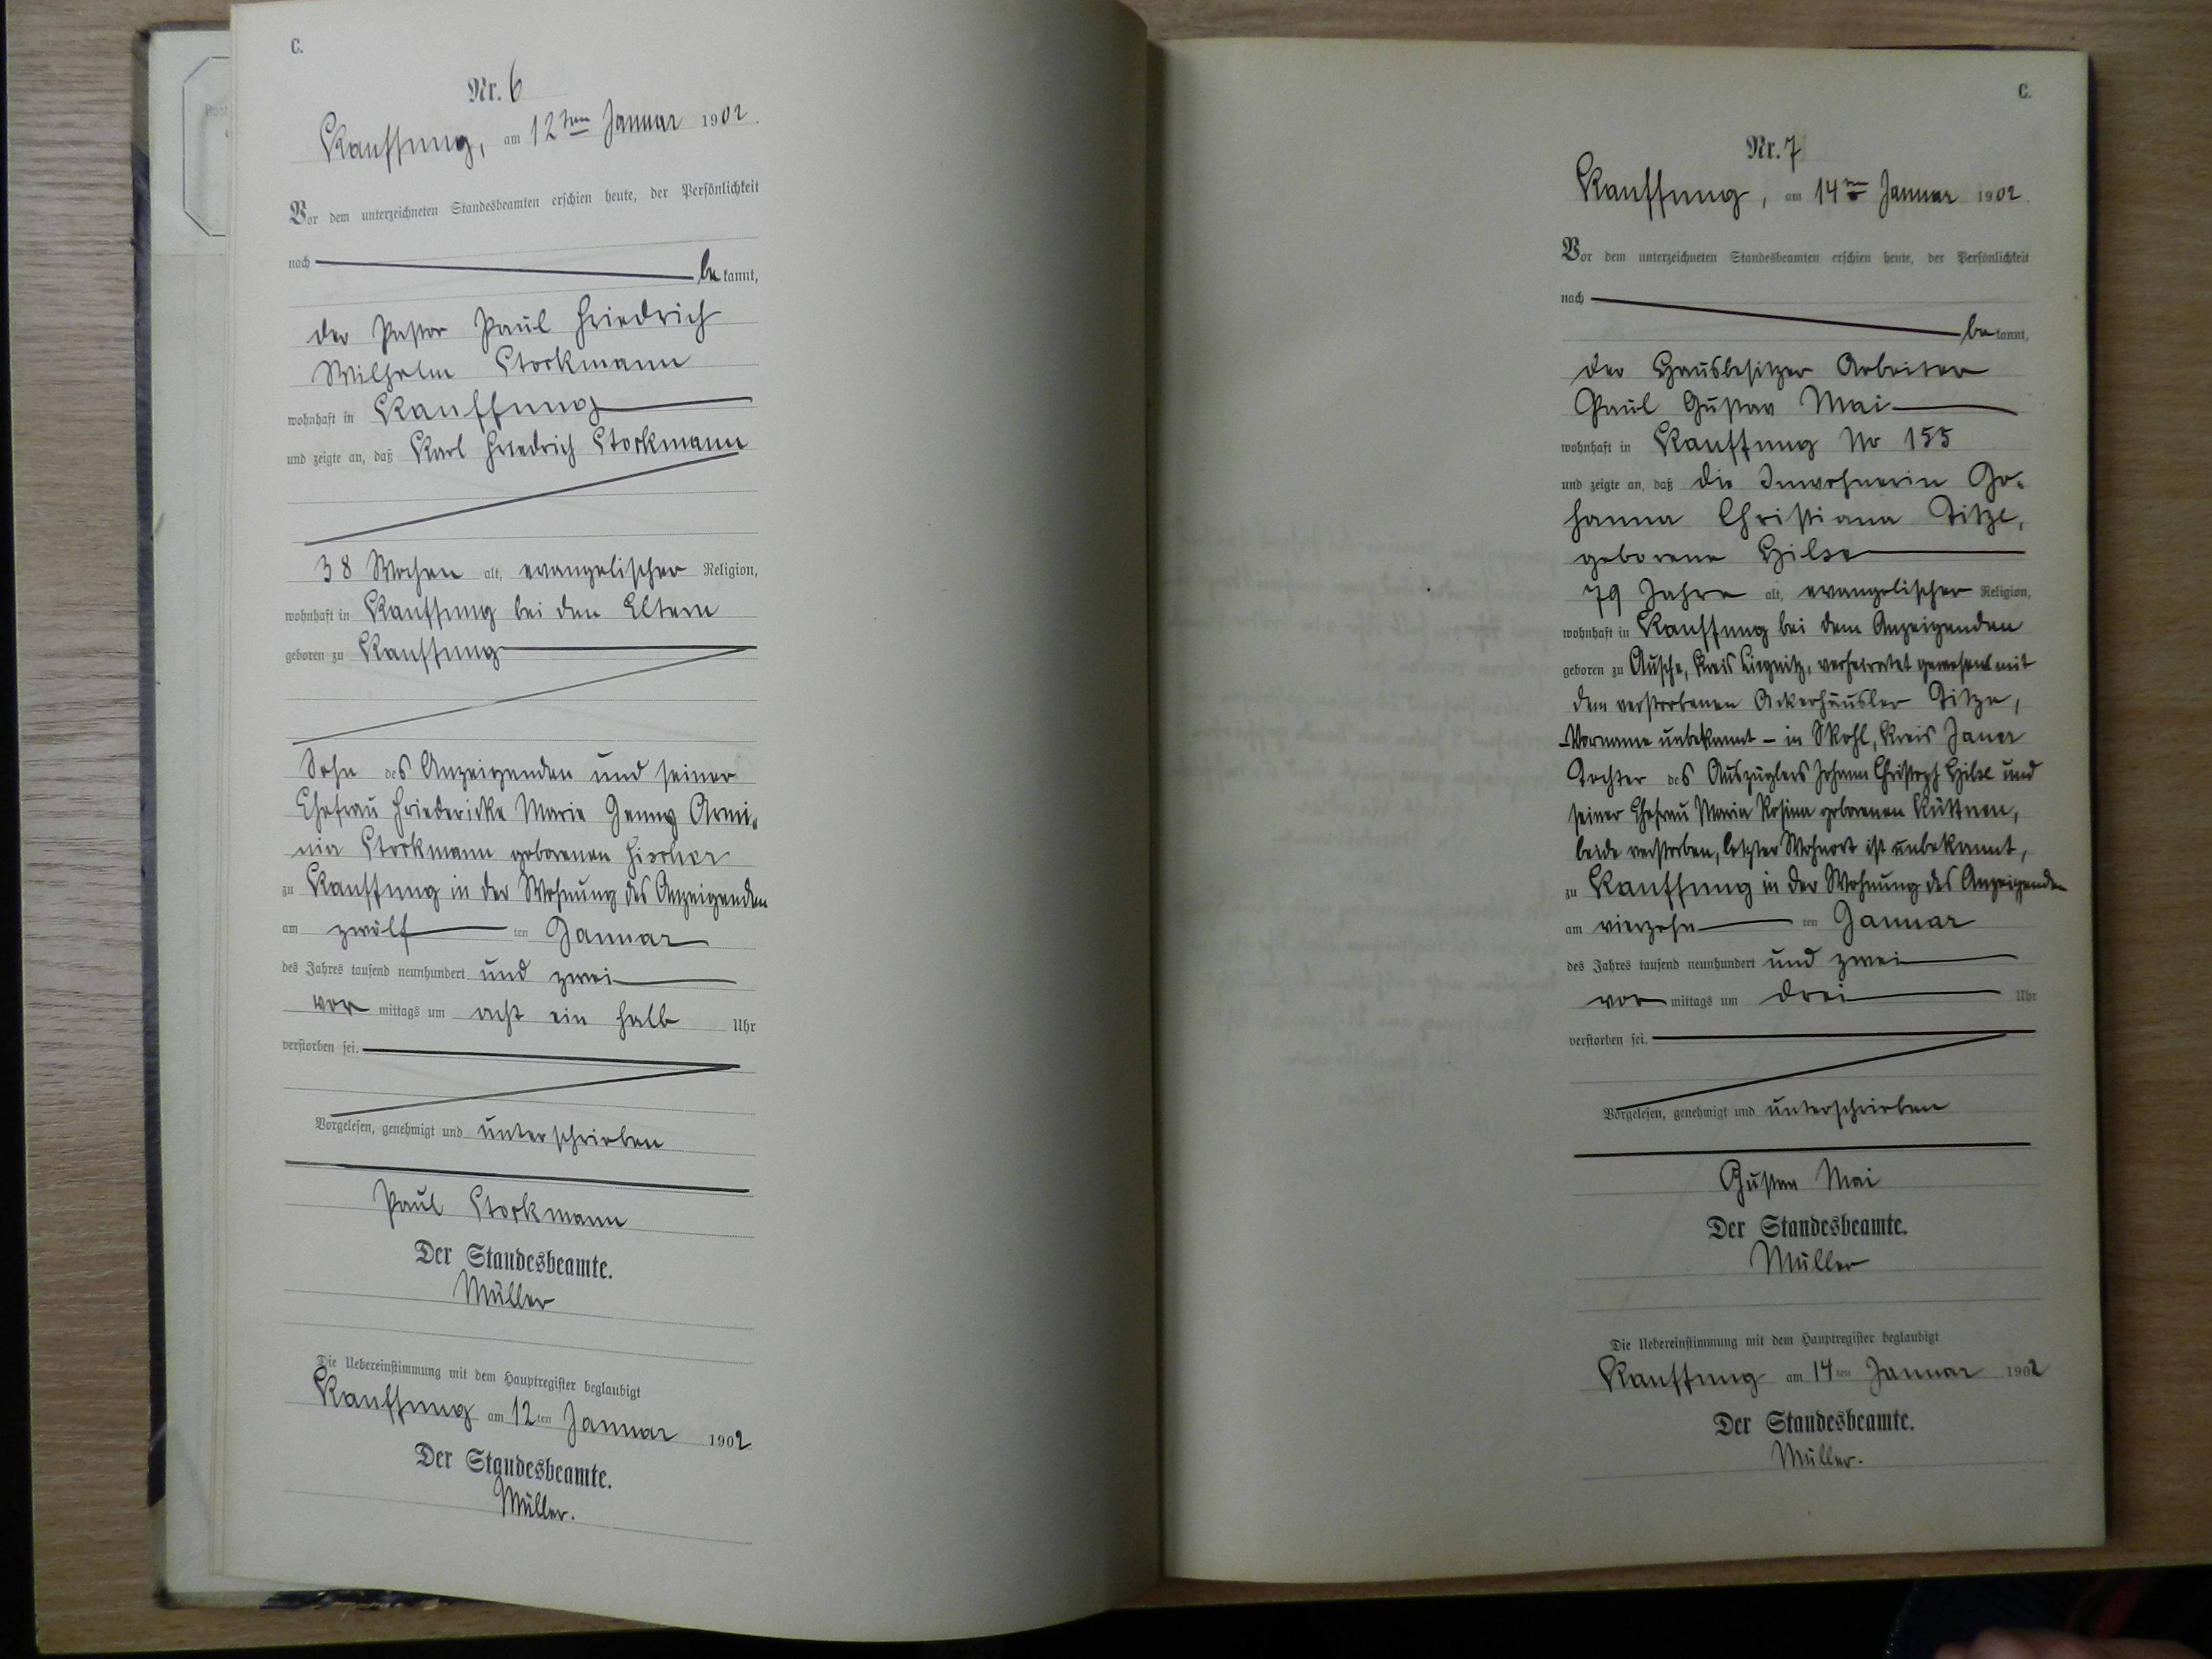 C.
Nr. 6
Kauffung, am 12ten Januar 1902.
Vor dem unterzeichneten Standesbeamten erschien heute, der Persönlichkeit
nach
be kannt,
der Pastor Paul Friedrich
Wilhelm Stockmann
wohnhaft in Kauffung
und zeigte an, daß Karl Friedrich Stockmann
38 Wochen alt, evangelischer Religion,
wohnhaft in Kauffung bei den Eltern
geboren zu Kauffung
Sohn des Anzeigenden und seiner
Ehefrau Friedericke Marie Jenny Armi-
nia Stockmann geborenen Fischer
zu Kauffung in der Wohnung des Anzeigenden
am zwölf ten Januar
des Jahres tausend neunhundert und zwei
vor mittags um acht ein halb Uhr
verstorben sei.
Vorgelesen, genehmigt und unterschrieben
Paul Stockmann
Der Standesbeamte.
Müller
Die Uebereinstimmung mit dem Hauptregister beglaubigt
Kauffung am 12ten Januar 1902
Der Standesbeamte.
Müller.
C.
Nr. 7
Kauffung, am 14ten Januar 1902.
Vor dem unterzeichneten Standesbeamten erschien heute, der Persönlichkeit
nach
be kannt,
der Hausbesitzer Arbeiter
Paul Gustav Mai
wohnhaft in Kauffung No 155
und zeigte an, daß die Inwohnerin Jo-
hanna Christiana Titze,
geborene Hilse
79 Jahre alt, evangelischer Religion,
wohnhaft in Kauffung bei dem Anzeigenden
geboren zu Kreis Liegnitz, verheiratet gewesen mit
dem verstorbenen Ackerhäusler Titze,
-Vorname unbekannt- in Skohl, Kreis Jauer
Tochter des Auszüglers Johann Christoph Hilse und
seiner Ehefrau Maria Rosina geborenen
beide verstorben, letzter Wohnort ist unbekannt,
zu Kauffung in der Wohnung des Anzeigenden
am vierzehn ten Januar
des Jahres tausend neunhundert und zwei
vor mittags um drei Uhr
verstorben sei.
Vorgelesen, genehmigt und unterschrieben
Gustav Mai
Der Standesbeamte.
Müller
Die Uebereinstimmung mit dem Hauptregister beglaubigt
Kauffung am 14ten Januar 1902
Der Standesbeamte.
Müller.